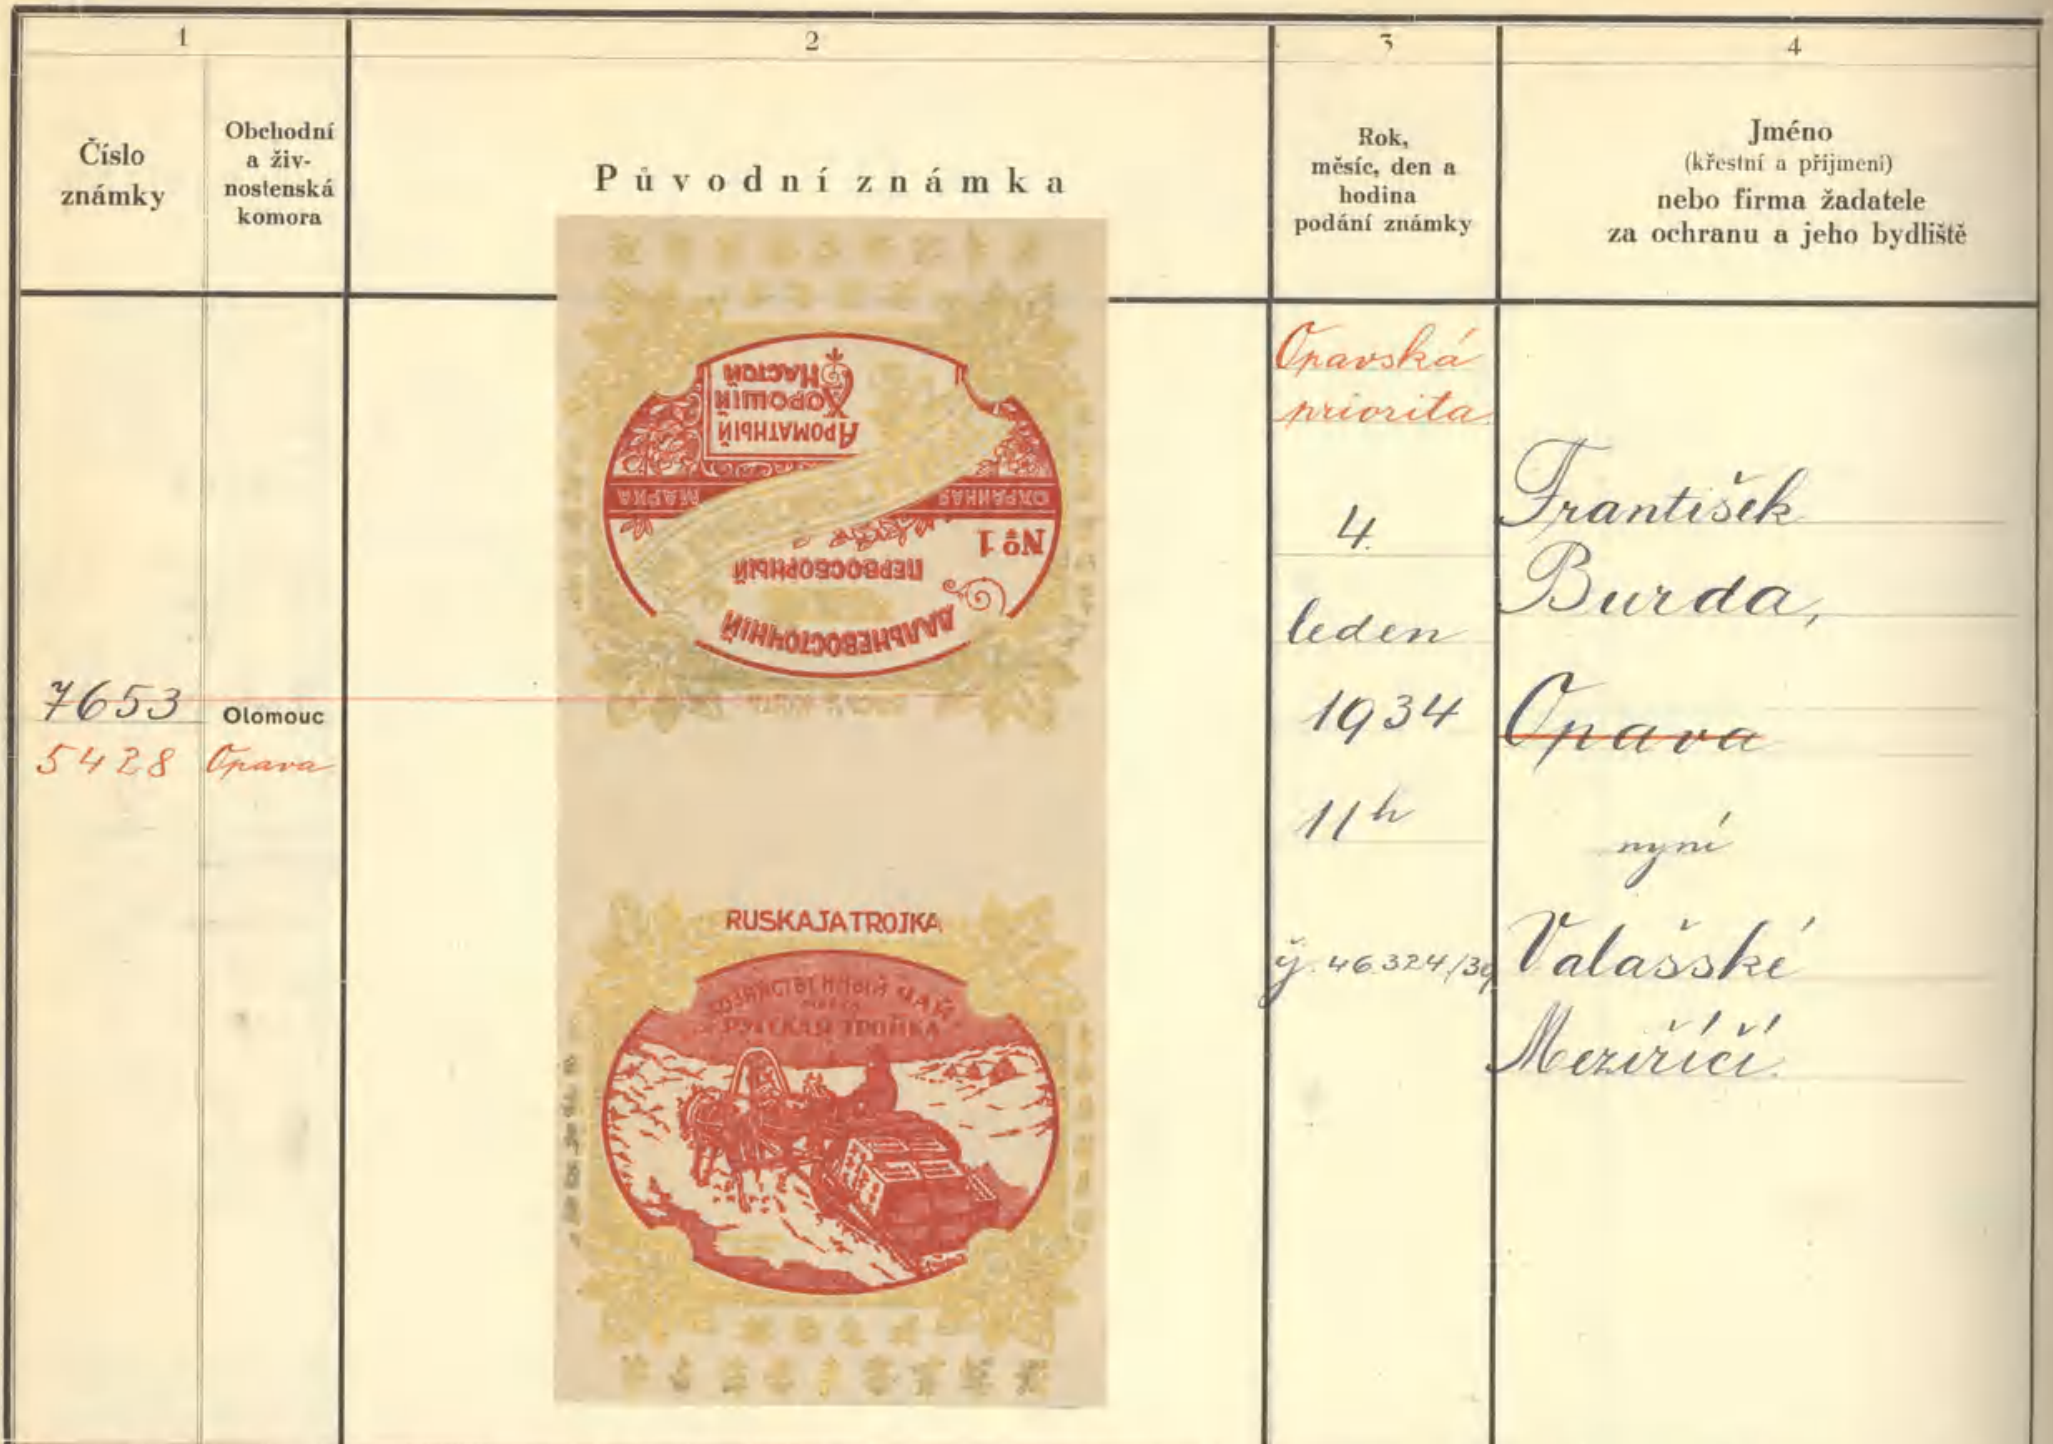 1
2
3
4
Číslo
známky
Obchodní
a živ-
nostenská
komora
Původní známka
Rok,
měsíc, den a
hodina
podání známky
Jméno
(křestní a příjmení)
nebo firma žadatele
za ochranu a jeho bydliště
7653
Olomouc
5428
Opava
ДАЛЬНЕВОСТОЧНІЙ
ПЕРВОСБОРНЫЙ
№1
ОХРАННАЯ
МАРКА
АРОМАТНЫЙ
ХОРОШІЙ
НАСТОЙ
RUSKAJA TROJKA
ХОЗЯЙСТВЕННЫЙ ЧАЙ
РУССКАЯ ТРОЙКА
Opavská
priorita.
4.
leden
1934
11h
František
Burda,
Opava
nyní
Valašské
Meziříčí.